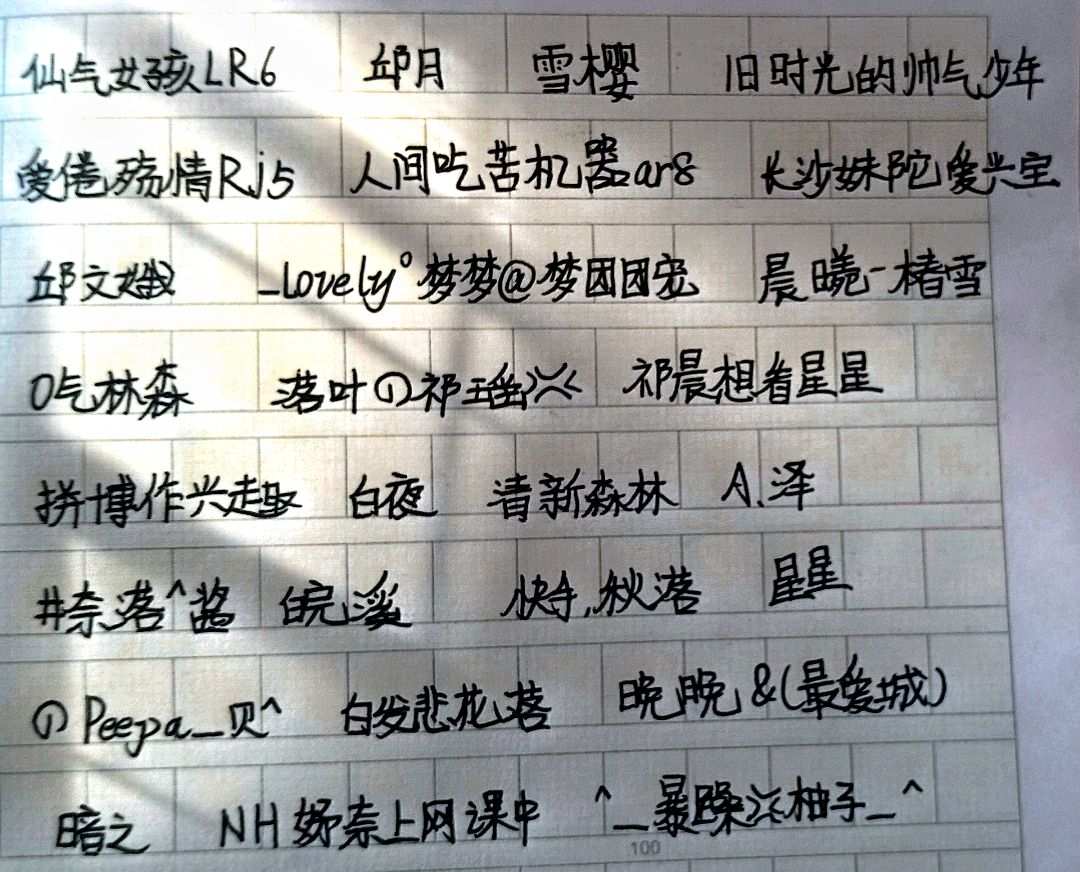 仙气女孩LR6 邱月 雪樱 旧时光的帅气少年
爱倦殇情Rj5 人间吃苦机器ar8 长沙妹陀爱兴宝
邱文娥 _lovely°梦梦@梦团团宏 晨曦-楮雪
O吃林森 落叶の祁瑶 祁晨想着星星
拼博作兴趣 白夜 清新森林 A.泽
#奈落^酱 皖溪 快令,秋落 星星
の Peepa_贝^ 白发悲花落 晚晚&(最爱城)
暗之 NH妤奈上网课中 ^_暴躁柚子_^
100